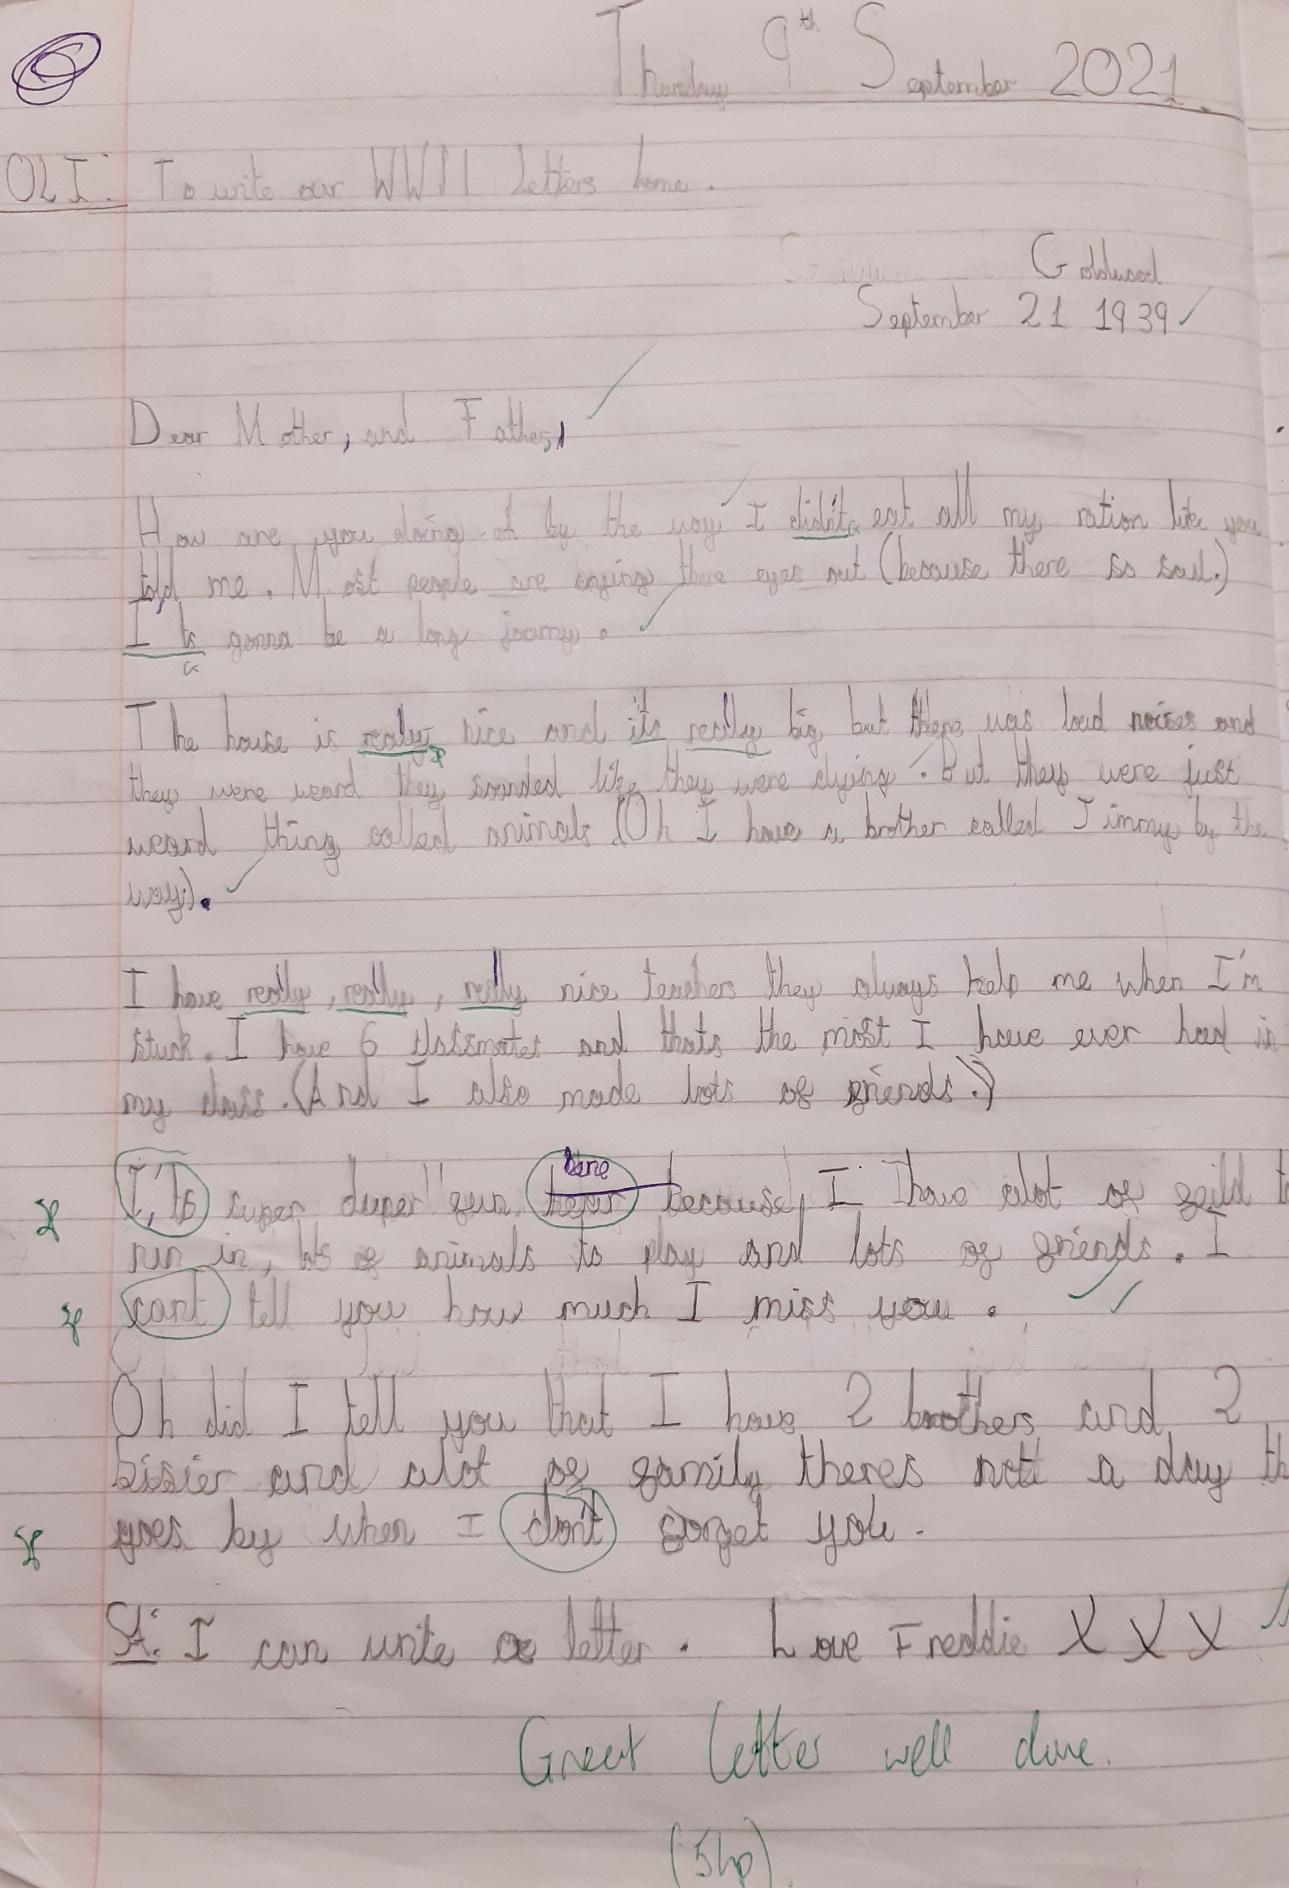 Thursday 9th September 2021.
OLI: To write our WWII letters home.
Goldwood
September 21 1939
Dear Mother, and Father,
How are you doing. by the way I didn't eat all my ration like you
told me. Most people are crying there eyes out (because there so saul.)
I'ts gonna be a long journy.
The house is realy nice and its really big but there was loud noises and
they were weard they sounded like they were dying. But they were just
weard thing called animals (Oh I have a brother called Jimmy by the
way).
I have really, really, really nice teachers they always help me when I'm
stuck. I have 6 classmates and thats the most I have ever had in
my class. (And I also made lots of friends.)
I'ts super duper fun here because, I have alot of feild to
run in, lots of animals to play and lots of friends. I
cant tell you how much I miss you.
Oh did I tell you that I have 2 brothers and 2
sisier and alot of family theres not a day th
goes by when I don't forget you.
St: I can write a letter. Love Freddie X X X
Great letter well done.
(5hp).